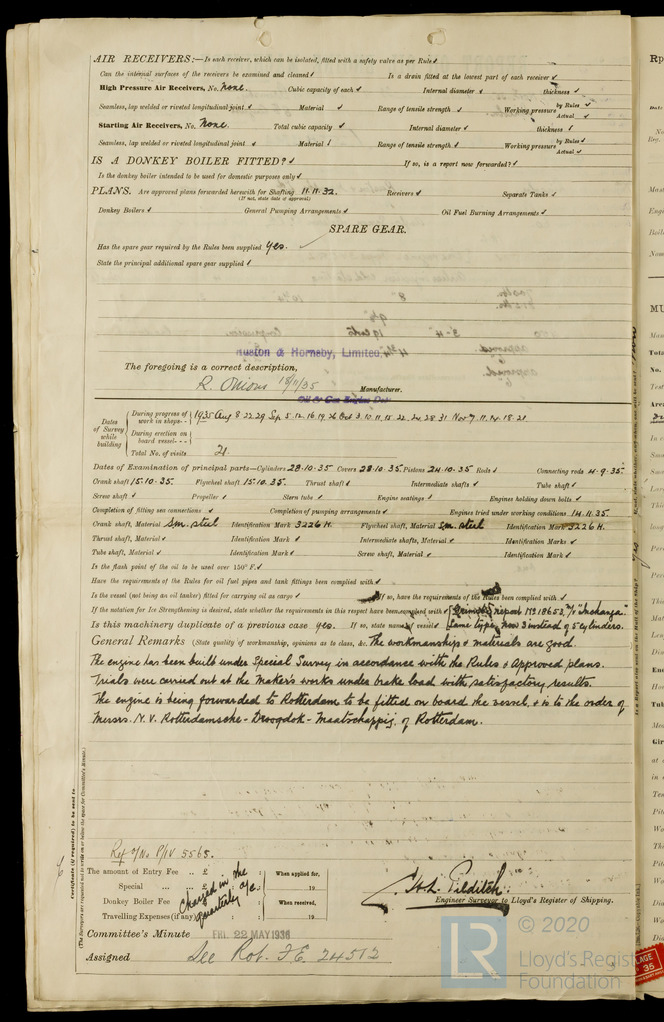 AIR RECEIVERS:—Is each receiver, which can be isolated, fitted with a safety valve as per Rule ✓
Can the internal surfaces of the receivers be examined and cleaned ✓ Is a drain fitted at the lowest part of each receiver ✓
High Pressure Air Receivers, No. None. Cubic capacity of each ✓ Internal diameter ✓ thickness ✓
Seamless, lap welded or riveted longitudinal joint ✓ Material ✓ Range of tensile strength ✓ Working pressure by Rules ✓ Actual ✓
Starting Air Receivers, No. None. Total cubic capacity ✓ Internal diameter ✓ thickness ✓
Seamless, lap welded or riveted longitudinal joint ✓ Material ✓ Range of tensile strength ✓ Working pressure by Rules ✓ Actual ✓
IS A DONKEY BOILER FITTED? ✓ If so, is a report now forwarded? ✓
Is the donkey boiler intended to be used for domestic purposes only ✓
PLANS. Are approved plans forwarded herewith for Shafting 11.11.32. Receivers ✓ Separate Tanks ✓
(If not, state date of approval)
Donkey Boilers ✓ General Pumping Arrangements ✓ Oil Fuel Burning Arrangements ✓
SPARE GEAR.
Has the spare gear required by the Rules been supplied yes.
State the principal additional spare gear supplied ✓
Ruston & Hornsby, Limited,
The foregoing is a correct description,
R. Onions 18/11/35 Manufacturer.
Oil & Gas Engine Dept
Dates of Survey while building
During progress of work in shops-- 1935 Aug 8. 22. 29 Sep 5. 12. 16. 19. 26 Oct 3. 10. 11. 15. 22. 24. 28. 31 Nov 7. 11. 14. 18. 21.
During erection on board vessel---
Total No. of visits 21.
Dates of Examination of principal parts—Cylinders 28.10.35 Covers 28.10.35 Pistons 24.10.35 Rods ✓ Connecting rods 4.9.35.
Crank shaft 15.10.35. Flywheel shaft 15.10.35. Thrust shaft ✓ Intermediate shafts ✓ Tube shaft ✓
Screw shaft ✓ Propeller ✓ Stern tube ✓ Engine seatings ✓ Engines holding down bolts ✓
Completion of fitting sea connections ✓ Completion of pumping arrangements ✓ Engines tried under working conditions 14.11.35.
Crank shaft, Material Sm. steel Identification Mark 3226 H. Flywheel shaft, Material Sm. steel Identification Mark 3226 H.
Thrust shaft, Material ✓ Identification Mark ✓ Intermediate shafts, Material ✓ Identification Marks ✓
Tube shaft, Material ✓ Identification Mark ✓ Screw shaft, Material ✓ Identification Mark ✓
Is the flash point of the oil to be used over 150° F. ✓
Have the requirements of the Rules for oil fuel pipes and tank fittings been complied with ✓
Is the vessel (not being an oil tanker) fitted for carrying oil as cargo ✓ If so, have the requirements of the Rules been complied with ✓
If the notation for Ice Strengthening is desired, state whether the requirements in this respect have been complied with ✓ report No 18653, "Incharga".
Is this machinery duplicate of a previous case yes. If so, state name of vessel Same type, now 3 instead of 5 cylinders.
General Remarks (State quality of workmanship, opinions as to class, &c. The workmanship & materials are good.
The engine has been built under Special Survey in accordance with the Rules & Approved plans.
Trials were carried out at the Maker's works under brake load with satisfactory results.
The engine is being forwarded to Rotterdam to be fitted on board the vessel, & is to the order of
Messrs. N. V. Rotterdamsche - Droogdok - Maatschappij, of Rotterdam.
Certificate (if required) to be sent to
(The Surveyors are requested not to write on or below the space for Committee's Minute.)
Ref o/No P/IV 5565.
The amount of Entry Fee .. £ : : When applied for,
Special ... £ : : 19
Donkey Boiler Fee ... £ : : When received,
Travelling Expenses (if any) £ : : 19
Charged in the quarterly a/c.
H. L. Pilditch.
Engineer Surveyor to Lloyd's Register of Shipping.
Committee's Minute FRI. 22 MAY 1936
Assigned See Rot. F.E. 24512
© 2020
LR Lloyd's Register
Foundation